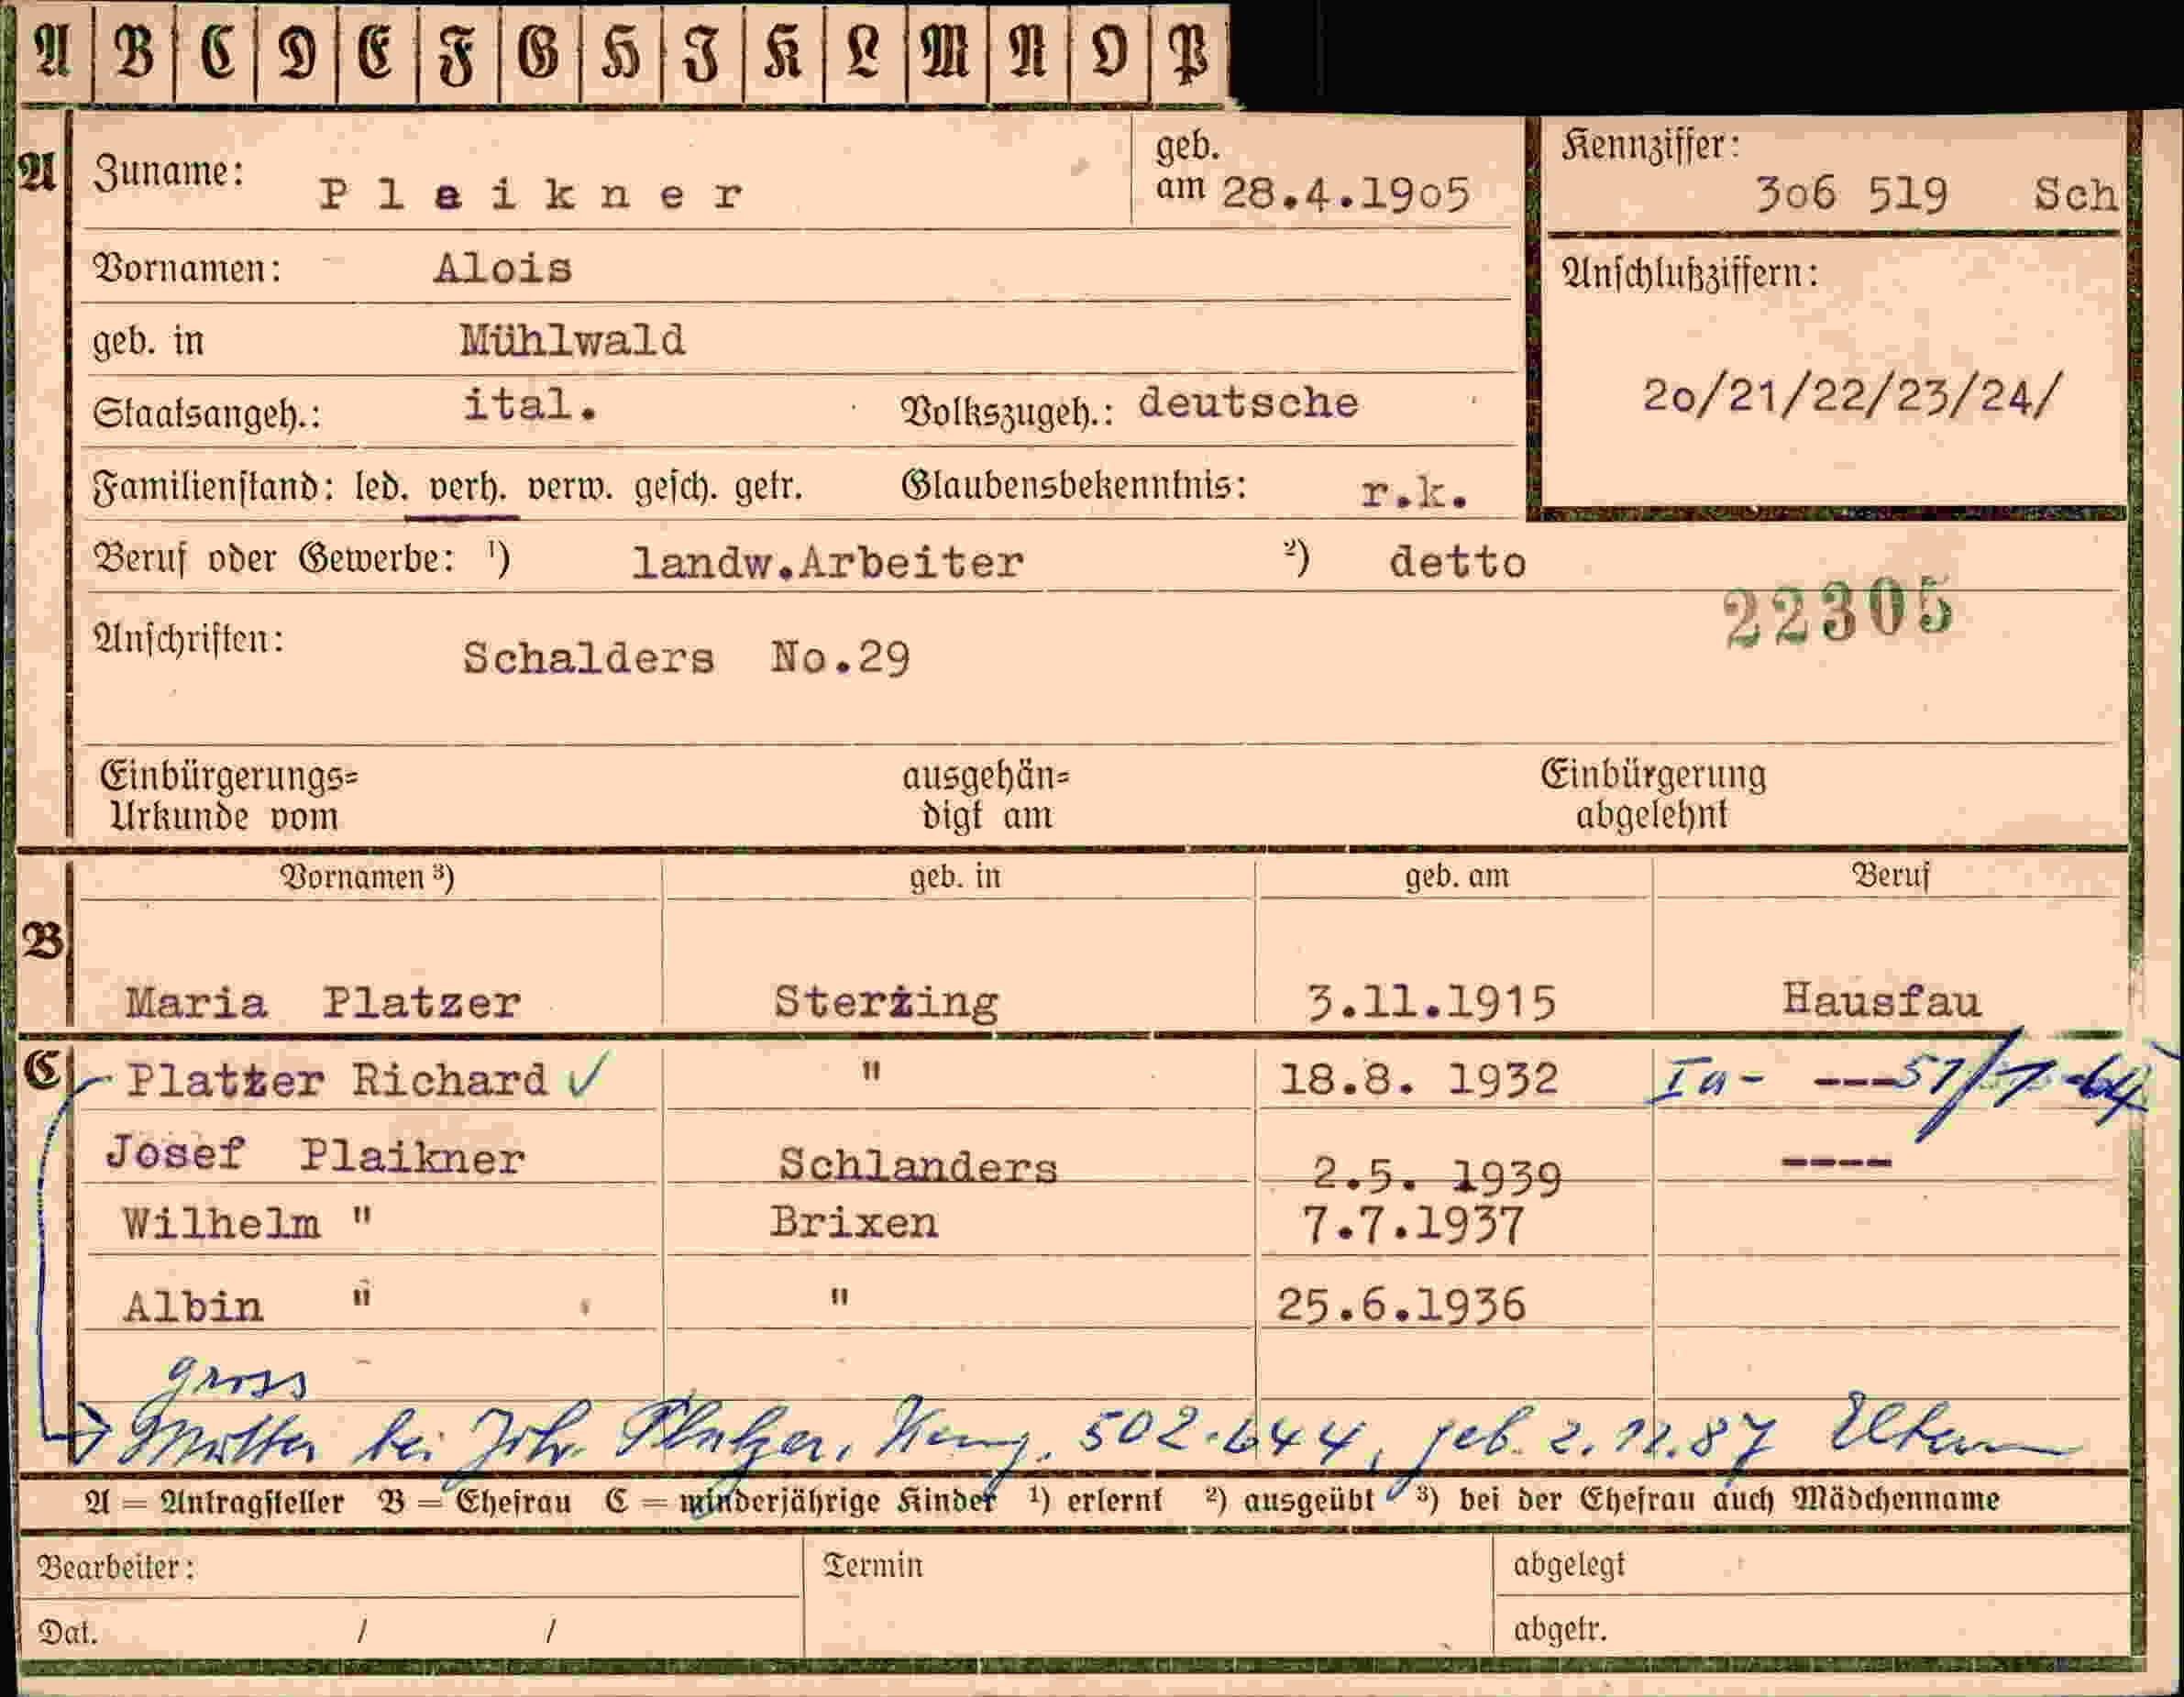 A B C D E F G H I K L M N O P
A Zuname: Plaikner geb. am 28.4.1905 Kennziffer: 306 519 Sch
Vornamen: Alois Anschlußziffern:
geb. in Mühlwald
Staatsangeh.: ital. Volkszugeh.: deutsche 20/21/22/23/24/
Familienstand: led. verh. verw. gesch. getr. Glaubensbekenntnis: r.k.
Beruf oder Gewerbe: ¹) landw.Arbeiter ²) detto
22305
Anschriften: Schalders No.29
Einbürgerungs= ausgehän= Einbürgerung
Urkunde vom digt am abgelehnt
Vornamen ³) geb. in geb. am Beruf
B
Maria Platzer Sterzing 3.11.1915 Hausfau
C Platzer Richard ✓ " 18.8. 1932 Ia- ---51/1-64
Josef Plaikner Schlanders 2.5. 1939 ----
Wilhelm " Brixen 7.7.1937
Albin " " 25.6.1936
gross
Mutter bei Joh. Platzer, 502.644, geb. 2.12.87
A = Antragsteller B = Ehefrau C = minderjährige Kinder ¹) erlernt ²) ausgeübt ³) bei der Ehefrau auch Mädchenname
Bearbeiter: Termin abgelegt
Dat. / / abgetr.